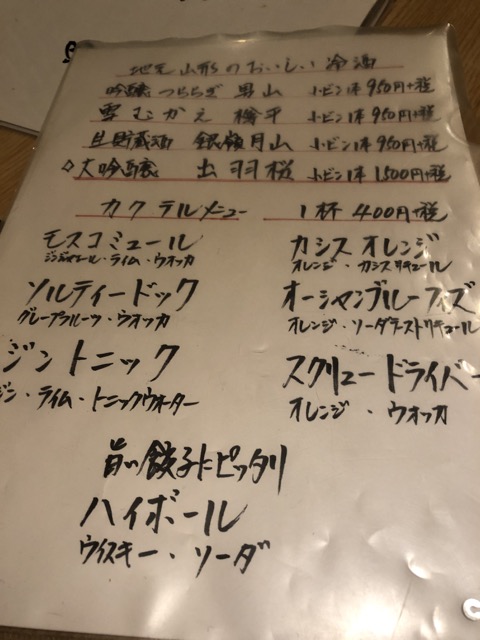 地元山形のおいしい冷酒
吟醸 つららぎ 男山 小ビン1本 950円+税
雪むかえ 樽平 小ビン1本 950円+税
生貯蔵酒 銀嶺月山 小ビン1本 950円+税
◇大吟醸 出羽桜 小ビン1本 1500円+税
カクテルメニュー 1杯 400円+税
モスコミュール
ジンジャエール・ライム・ウオッカ
カシスオレンジ
オレンジ・カシスリキュール
ソルティードック
グレープフルーツ・ウオッカ
オーシャンブルーフィズ
オレンジ・ソーダ
ジントニック
ジン・ライム・トニックウォーター
スクリュードライバー
オレンジ・ウオッカ
旨い餃子にピッタリ
ハイボール
ウイスキー・ソーダ